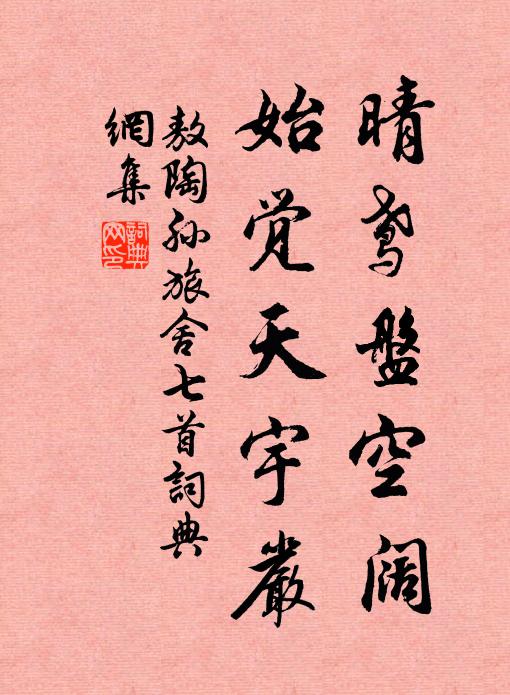 晴鸢盤空阔
始觉天宇嚴
敖陶孙旅舍七首詞典
網集
詞典
网印